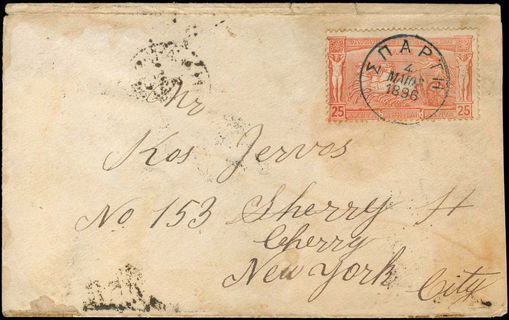 ΣΠΑΡΤΗ
4
ΜΑΙΟΣ
1896
25 25
Mr
Kos Jervos
No 153 Sherry St
Cherry
New York
City